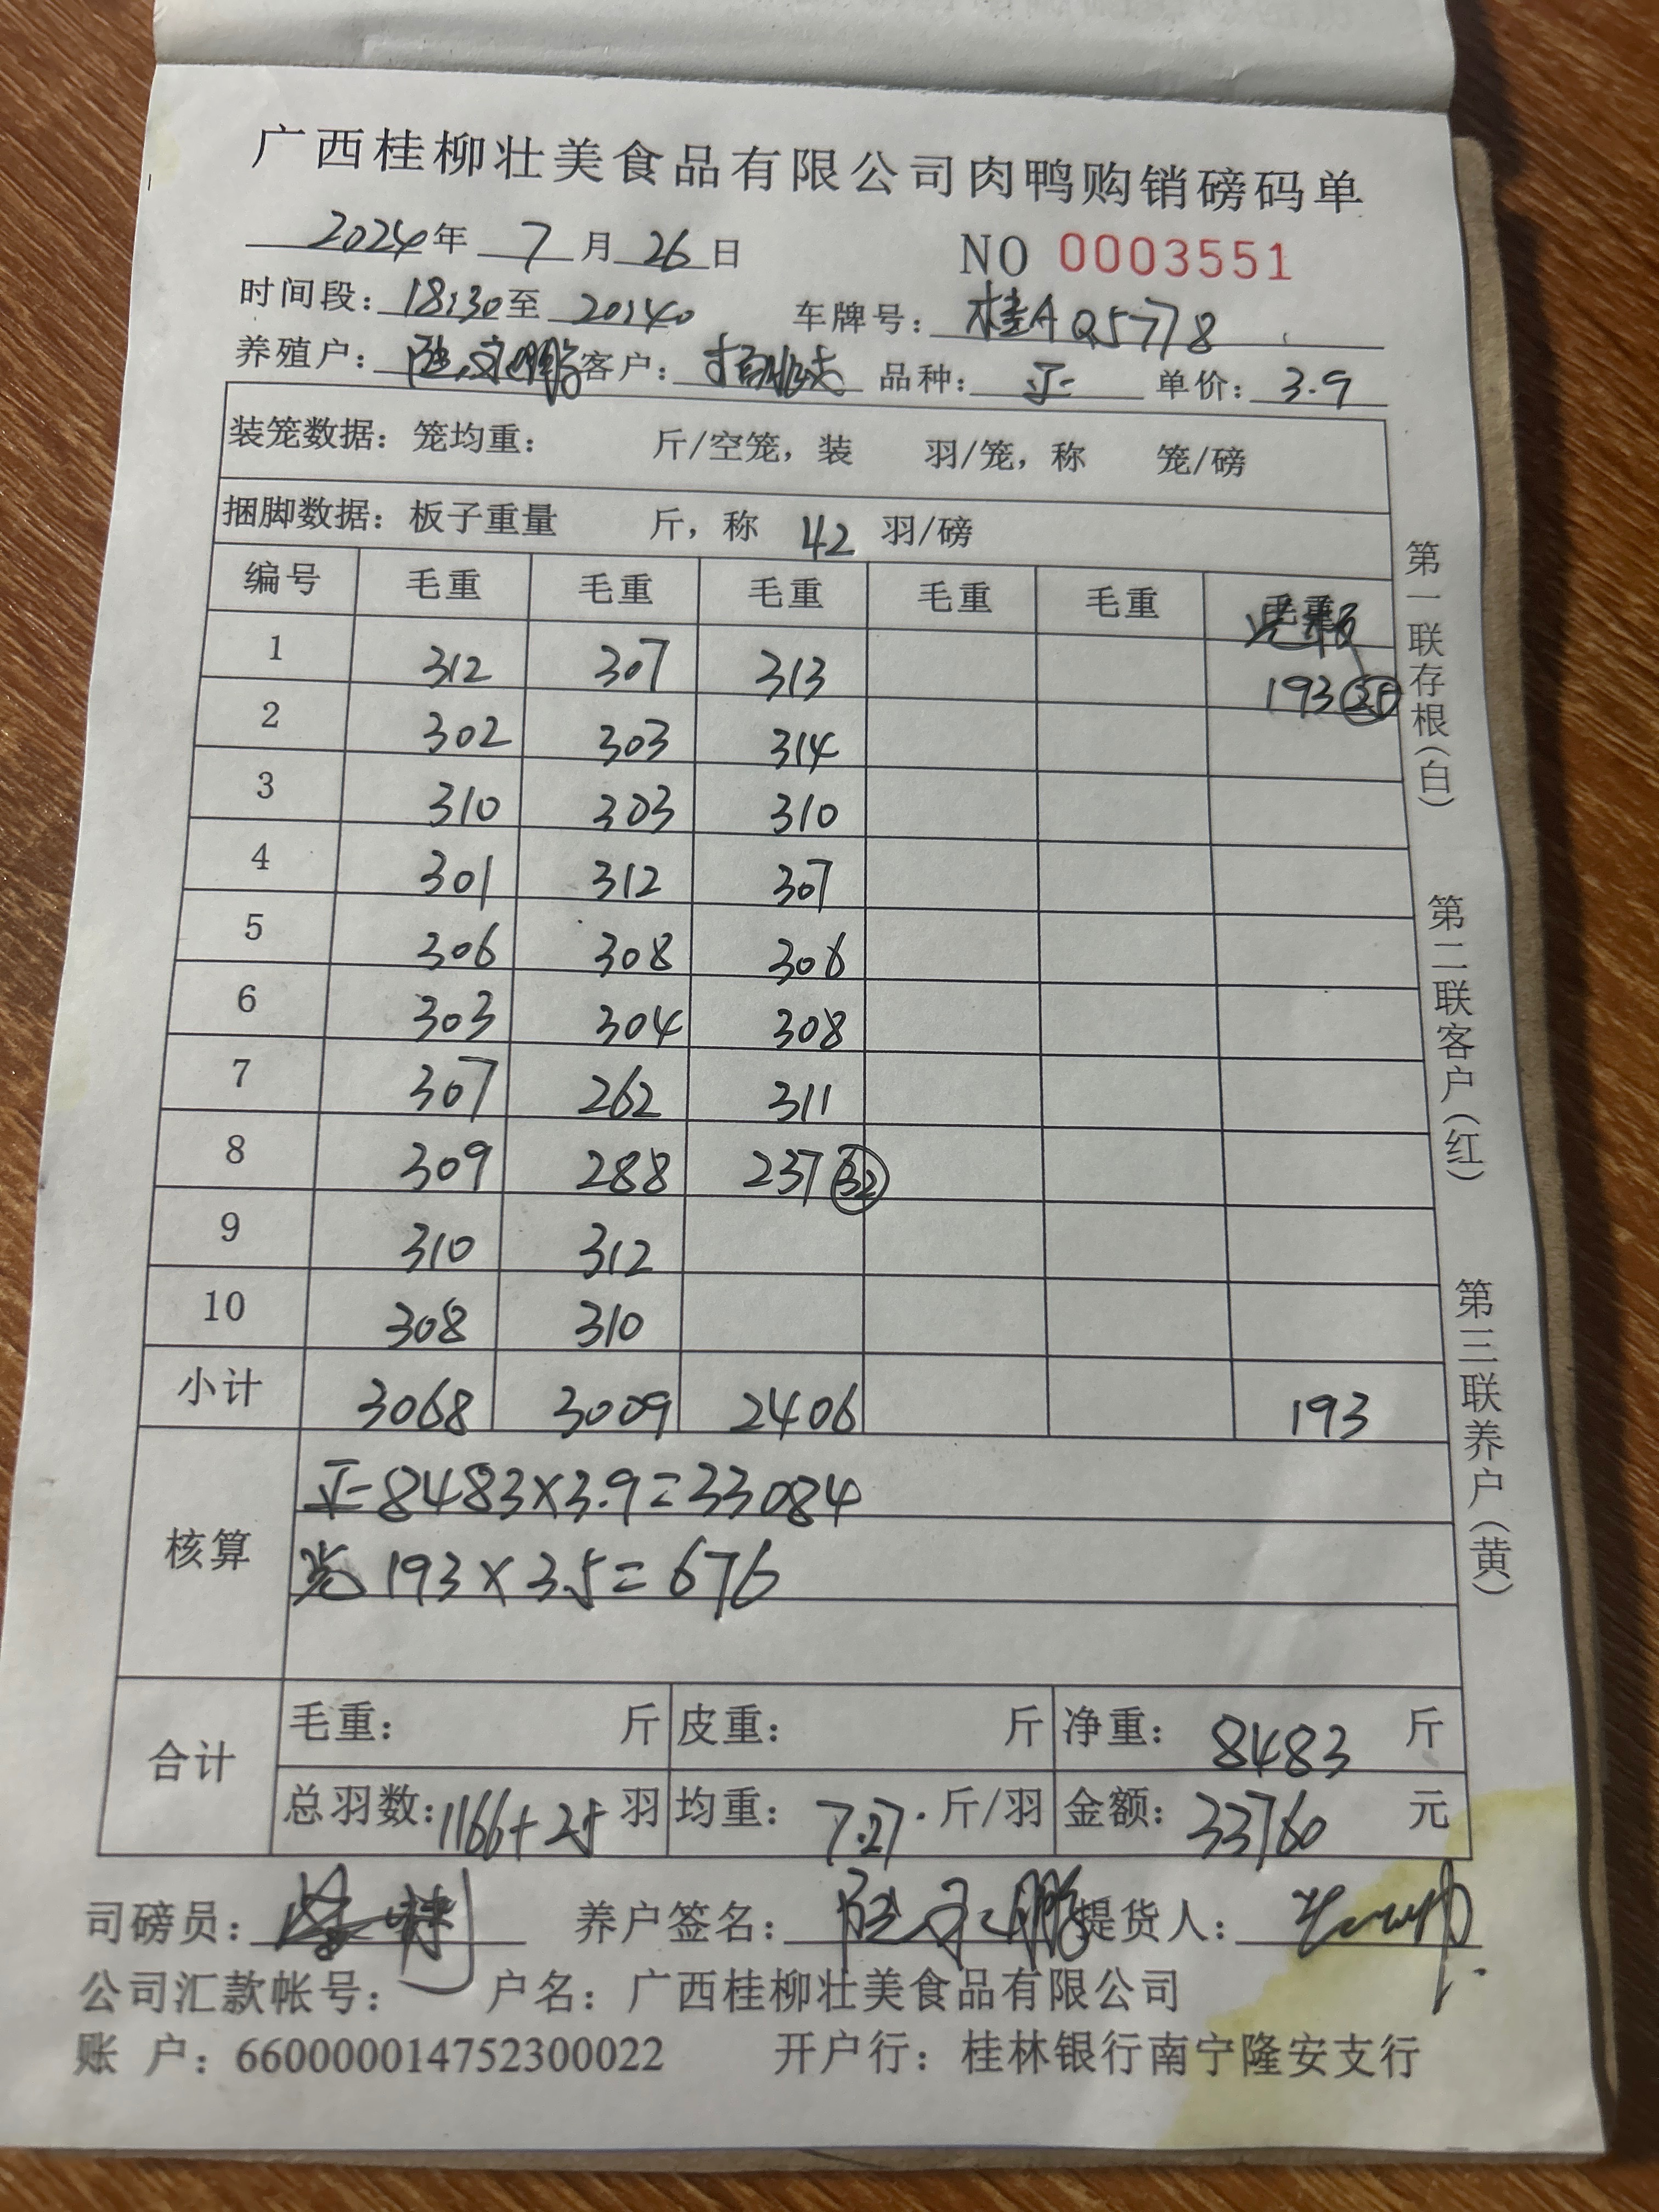 广西桂柳壮美食品有限公司肉鸭购销磅码单
2024年 7月 26日 NO 0003551
时间段：18:30至 20:40 车牌号：桂AQ5778
养殖户： 客户： 品种：正 单价：3.9
装笼数据：笼均重： 斤/空笼，装 羽/笼，称 笼/磅
捆脚数据：板子重量 斤，称 42 羽/磅
编号 毛重 毛重 毛重 毛重 毛重
1 312 307 313 193 25
2 302 303 314
3 310 303 310
4 301 312 307
5 306 308 306
6 303 304 308
7 307 262 311
8 309 288 237 32
9 310 312
10 308 310
小计 3068 3009 2406 193
核算 正 8483×3.9=33084
光 193×3.5=676
合计 毛重： 斤 皮重： 斤 净重：8483 斤
总羽数：1166+25 羽 均重：7.27 斤/羽 金额：33760 元
司磅员： 养户签名： 提货人：
公司汇款帐号： 户名：广西桂柳壮美食品有限公司
账 户：660000014752300022 开户行：桂林银行南宁隆安支行
第一联存根（白） 第二联客户（红） 第三联养户（黄）